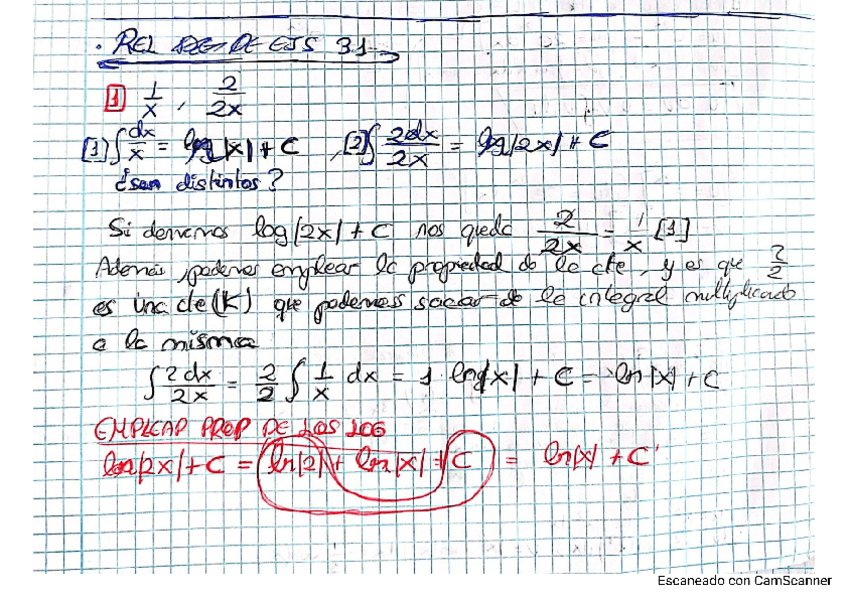 . REL DE EJS 3.1
1 1/x , 2/2x
[1] ∫ dx/x = log|x| + C , [2] ∫ 2dx/2x = log|2x| + C
¿son distintos?
Si derivamos log|2x| + C nos queda 2/2x = 1/x [1]
Además, podemos emplear la propiedad de la cte, y es que 2/2
es una cte (K) que podemos sacar de la integral multiplicado
a la misma
∫ 2dx/2x = 2/2 ∫ 1/x dx = 1 · ln|x| + C = ln|x| + C
EMPLEAR PROP DE LOS LOG
ln|2x| + C = ln|2| + ln|x| + C = ln|x| + C'
Escaneado con CamScanner